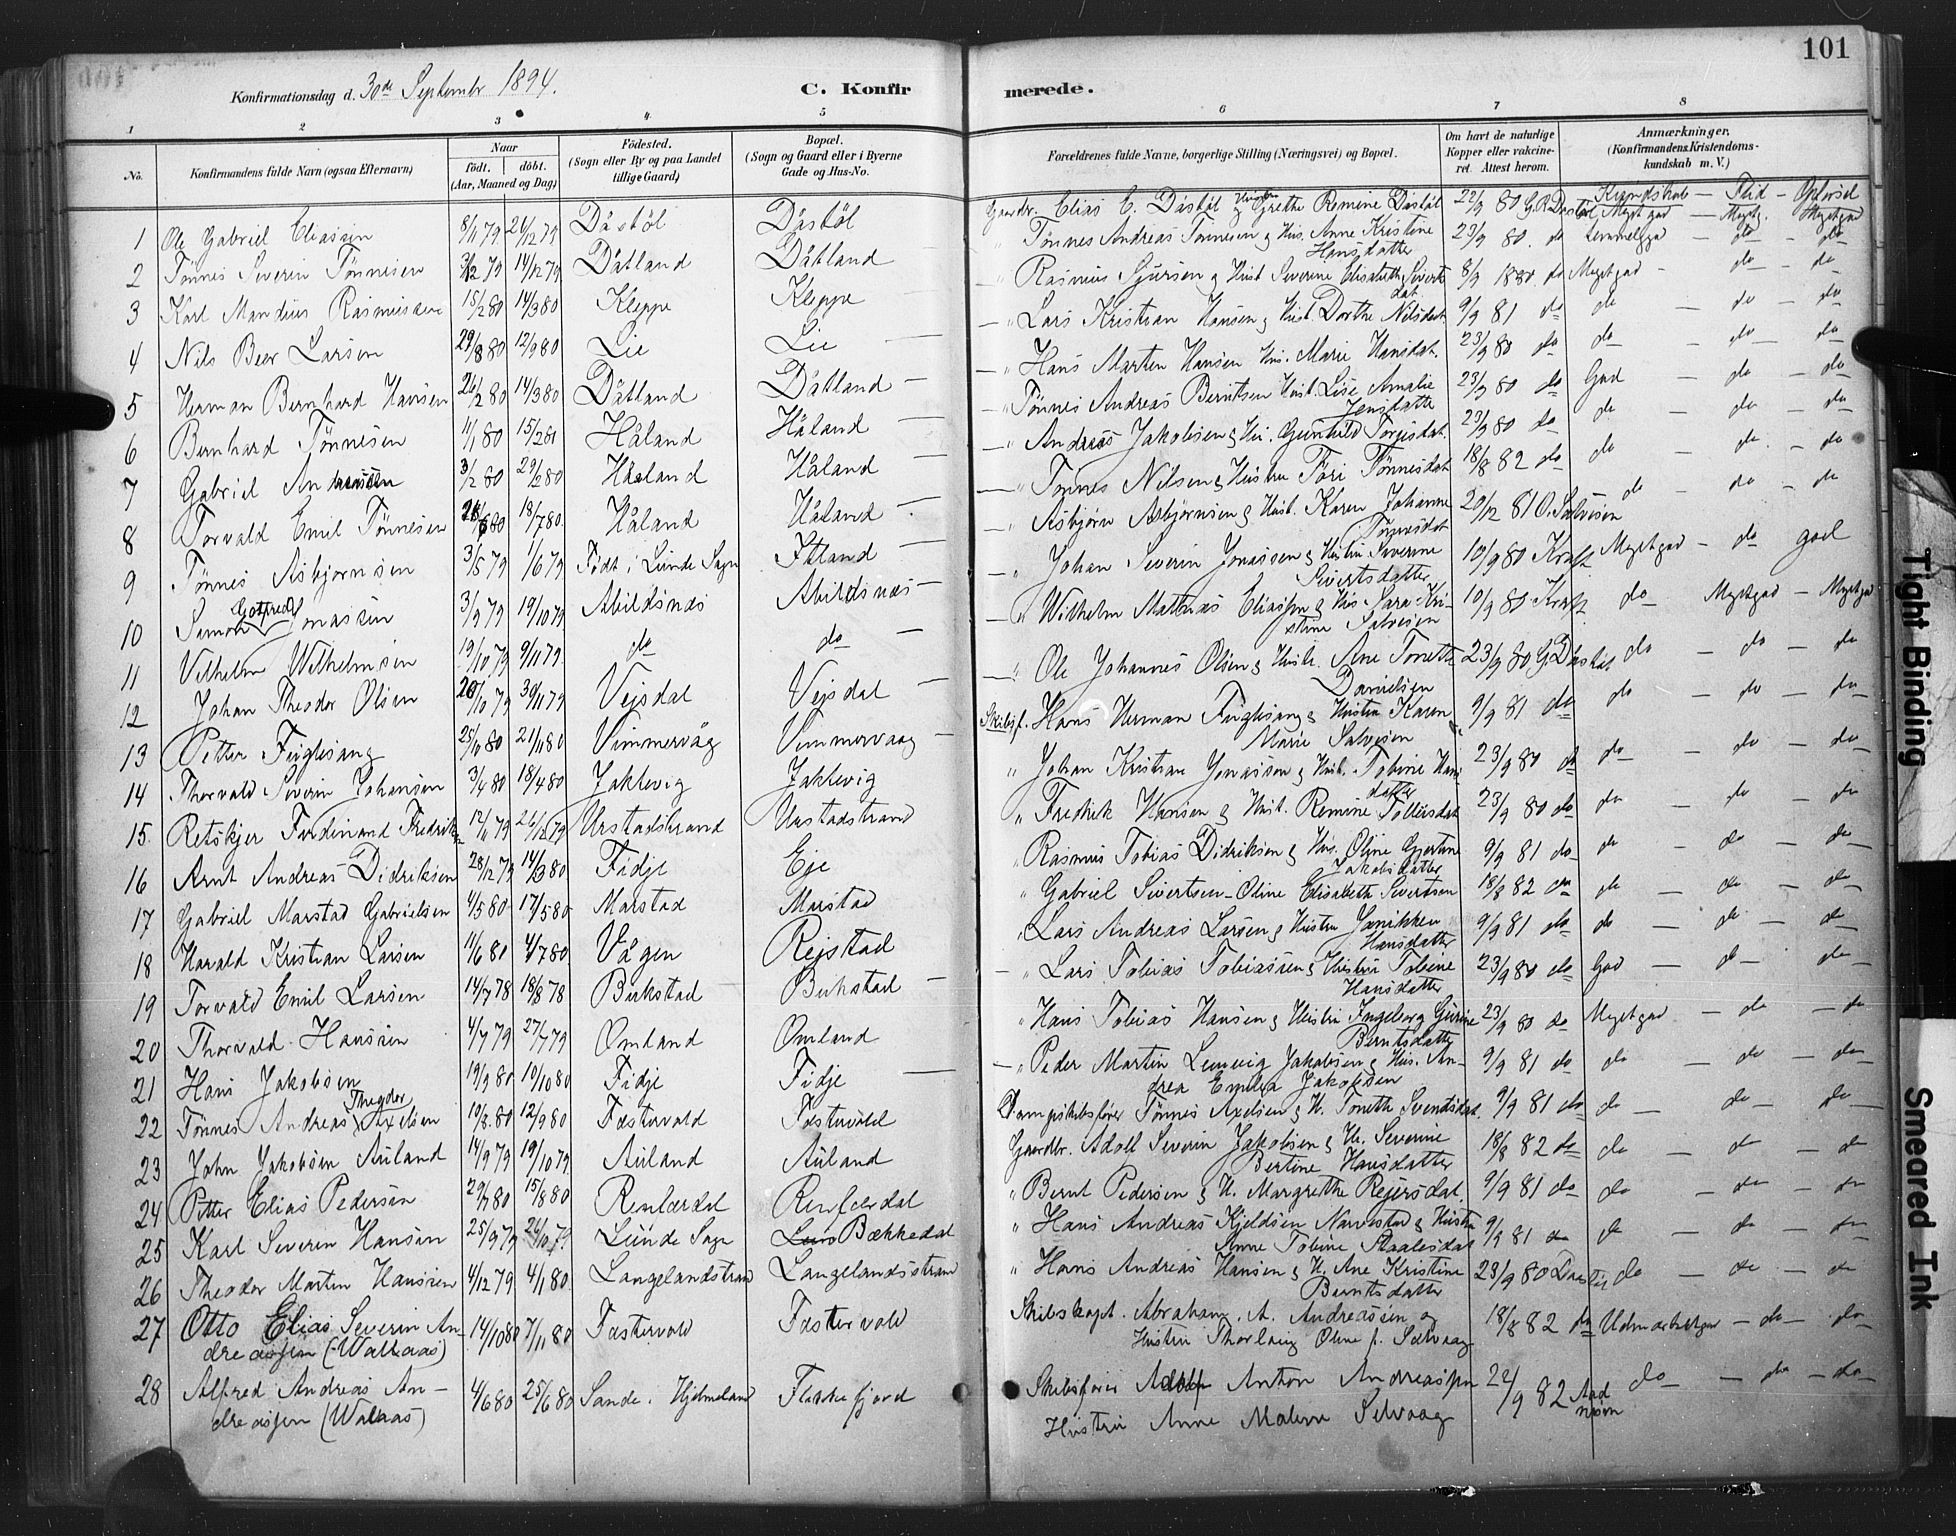 101
Konfirmationsdag d. 30de September 1894.
C. Konfirmerede.
1 2 3 4 5 6 7 8
No.
Konfirmandens fulde Navn (ogsaa Efternavn)
Naar
født. døbt.
(Aar, Maaned og Dag)
Fødested.
(Sogn eller By og paa Landet
tillige Gaard)
Bopæl.
(Sogn og Gaard eller i Byerne
Gade og Hus-No.
Forældrenes fulde Navne, borgerlige Stilling (Næringsvei) og Bopæl.
Om havt de naturlige
Kopper eller vakcine-
ret. Attest herom.
Anmærkninger.
(Konfirmandens Kristendoms-
kundskab m. V.)
Kundskab — Flid — Opførsel
1 Ole Gabriel Eliassen 8/11 79 26/12 79 Dåstøl Dåstøl Gaardbr. Elias E. Dåstøl og Hustru Grethe Remine Dåstøl 22/9 80 G.R.Dåstøl Meget god — Meget — Meget god
2 Tønnes Severin Tønnesen 14/12 79 Dåtland Dåtland Tønnes Andreas Tønnesen & Hus. Anne Kristine Hansdatter 23/9 80 do Temmelig god — do — do
3 Karl Mandius Rasmussen 15/2 80 14/3 80 Kleppe Kleppe Rasmus Sjursen & Hust. Severine Elisabeth Sivertsdat. 8/9 1880 do Meget god — do — do
4 Nils Beer Larsen 29/8 80 12/9 80 Lie Lie Lars Kristian Hansen & Hust. Dorthe Nilsdat. 9/9 81 do do — do — do
5 Herman Bernhard Hansen 26/2 80 14/3 80 Dåtland Dåtland Hans Marten Hansen Hus. Marie Hansdat. 23/9 80 do do — do — do
6 Bernhard Tønnesen 11/1 80 15/2 80 Håland Håland Tønnes Andreas Berntsen Hust. Lise Amalie Jensdatter 23/9 80 do God — do — do
7 Gabriel Andreassen 3/2 80 29/2 80 Håland Håland Andreas Jakobsen & Hu. Gunhild Torgisdat. 23/9 80 do do — do — do
8 Torvald Emil Tønnesen 18/7 80 Håland Håland Tønnes Nilsen & Hustru Tøri Tønnesdat 18/8 82 do do — do — do
9 Tønnes Asbjørnsen 3/5 79 1/6 79 Født i Lunde Sogn Itland Asbjørn Asbjørnsen & Hust. Karen Johanne Tønnesdat 20/12 81 O. Salvesen do — do — do
10 Simon Gotfred Jonassen 3/9 79 19/10 79 Abildsnæs Abildsnæs Johan Severin Jonassen & Hustru Severine Sivertsdatter 10/9 80 Kraft Meget god — do god
11 Vilhelm Wilhelmsen 19/10 79 9/11 79 do do Wilhelm Mathias Eliassen & Hus Sara Kristine Salvesen 10/9 80 Kraft do Meget god — Meget god
12 Johan Theodor Olsen 30/11 79 Vejsdal Vejsdal Ole Johannes Olsen & Hustr. Ane Tonette Danielsen 23/9 80 G.Dåstøl do — do — do
13 Petter Fuglesang 25/10 80 21/11 80 Vimmervåg Vimmervaag Skibsf. Hans Herman Fuglesang & Hustru Karen Marie Salvesen 9/9 81 do do — do — do
14 Thorvald Severin Johansen 3/4 80 18/4 80 Jaktevig Jaktevig Johan Kristian Jonassen & Hust. Tobine Hansdatter 23/9 80 do do — do — do
15. Retskjer Ferdinand Fredriksen 12/11 79 26/12 79 Urstadstrand Urstadstrand Fredrik Hansen & Hust. Remine Tollersdat 23/9 80 do do — do — do
16 Arnt Andreas Didriksen 28/12 79 14/3 80 Fidje Eje Rasmus Tobias Didriksen & Hus. Oline Gjertine Jakobsdatter 9/9 81 do do — do — do
17 Gabriel Marstad Gabrielsen 4/5 80 17/5 80 Marstad Marstad Gabriel Sivertsen - Oline Elisabeth Sivertsen 18/8 82 do do — do — do
18 Harald Kristian Larsen 11/6 80 4/7 80 Vågen Rejstad Lars Andreas Larsen & Hustru Janikken Hansdatter 9/9 81 do do — do — do
19 Torvald Emil Larsen 14/7 78 18/8 78 Bukstad Bukstad Lars Tobias Tobiassen & Hustru Tobine Hansdatter 23/9 80 do God — do — do
20 Thorvald Hansen 4/7 79 27/7 79 Omland Omland Hans Tobias Hansen & Hustru Ingeborg Gurine Berntsdatter 23/9 80 do Meget god — do — do
21 Hans Jakobsen 19/9 80 10/10 80 Fidje Fidje Peder Martin Lennvig Jakobsen & Hus. Andrea Emilia Jakobsen 9/9 81 do do — do — do
22 Tønnes Andreas Theodor Axelsen 19/8 80 12/9 80 Fæstervold Fæstervold Dampskibsfører Tønnes Axelsen & H. Tonette Svendsdat. 9/9 81 do do — do — do
23 John Jakobsen Auland 14/9 79 19/10 79 Auland Auland Gaardbr. Adolf Severin Jakobsen & Hu. Severine Bertine Hansdatter 18/8 82 do do — do — do
24 Petter Elias Pedersen 29/7 80 15/8 80 Renlærdal Renlærdal Bernt Pedersen & H. Margrethe Rejersdat. 9/9 81 do do — do — do
25 Karl Severin Hansen 25/9 79 26/10 79 Lunde Sogn Bækkedal Hans Andreas Kjeldsen Narvestad & Hustru Anne Tobine Staalesdat 9/9 81 do do — do — do
26 Theodor Martin Hansen 4/12 79 4/1 80 Langelandstrand Langelandsstrand Hans Andreas Hansen & H. Ane Kristine Berntsdatter 23/9 80 Dåstøl do — do — do
27 Otto Elias Severin Andreassen (Walaas) 14/10 80 7/11 80 Fæstervold Fæstervold Skibskapt. Abraham A. Andreassen og Hustru Thorborg Oline f. Sælvaag 18/8 82 do Udmærket god — do — do
28 Alfred Andreas Andreassen (Walaas) 4/6 80 25/6 80 Sande i Hjelmeland Flekkefjord Skibsfører Adolf Anton Andreassen Hustru Anne Malene Selvaag 22/9 82 Aadnesen do — do — do
Tight Binding
Smeared Ink